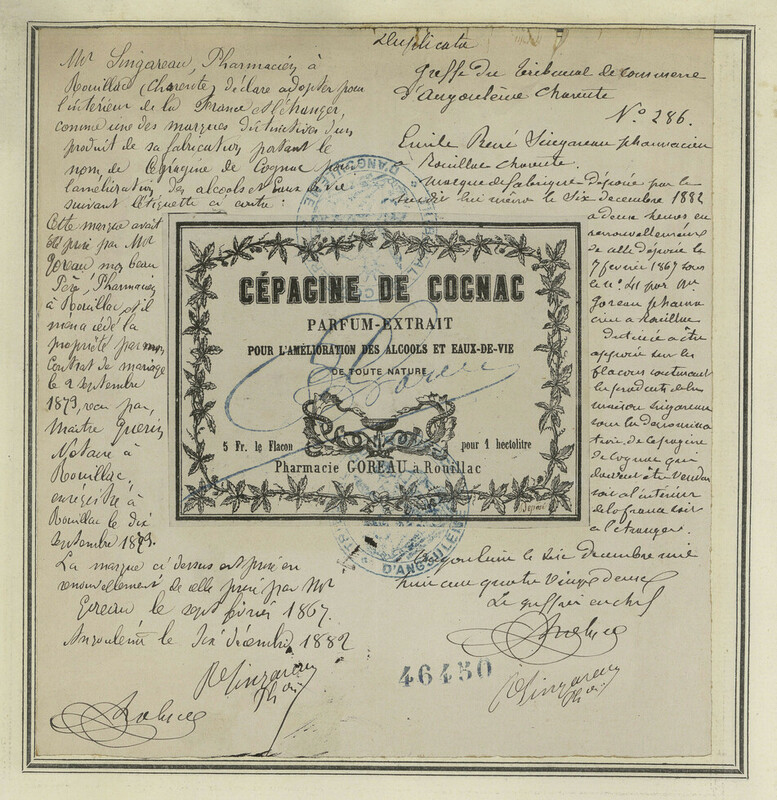 Duplicata
Mr Singareau, Pharmacien à
Rouillac (Charente) déclare adopter pour
l'intérieur de la France et l'étranger,
comme une des marques distinctives d'un
produit de sa fabrication portant le
nom de Cépagine de Cognac pour
l'amélioration des alcools et Eaux de vie
suivant l'étiquette ci contre :
Cette marque avait
été prise par Mr
Goreau mon beau
Père, Pharmacien
à Rouillac, et il
m'en a cédé la
propriété par mon
Contrat de mariage
le 2 septembre
1873, reçu par,
Maître Guerin
Notaire à
Rouillac,
enregistré à
Rouillac le dix
septembre 1873.
La marque ci dessus est prise en
renouvellement de celle prise par Mr
Goreau le sept février 1867.
Angoulême le Six décembre 1882
RSingareau
Phien
Greffe du Tribunal de commerce
d'Angoulême Charente
N° 286.
Emile René Singareau pharmacien
à Rouillac Charente.
Marque de fabrique déposée par le
susdit lui même le Six decembre 1882
à deux heures en
renouvellement
de celle déposée le
7 fevrier 1867 sous
le n° 41 par Mr
Goreau pharma
cien à Rouillac
Destinée à être
apposée sur les
flacons contenant
les produits de la
maison Singareau
sous la dénomina
tion de Cepagine
de Cognac qui
doivent être vendus
soit à l'intérieur
de la france soit
à l'étranger.
Angoulême le Six decembre mil
huit cent quatre vingt deux
Le greffier en chef
RSingareau
Phien
46450
CÉPAGINE DE COGNAC
PARFUM-EXTRAIT
POUR L'AMÉLIORATION DES ALCOOLS ET EAUX-DE-VIE
DE TOUTE NATURE
5 Fr. le Flacon
pour 1 hectolitre
Pharmacie GOREAU à Rouillac
D'ANGOULÊME